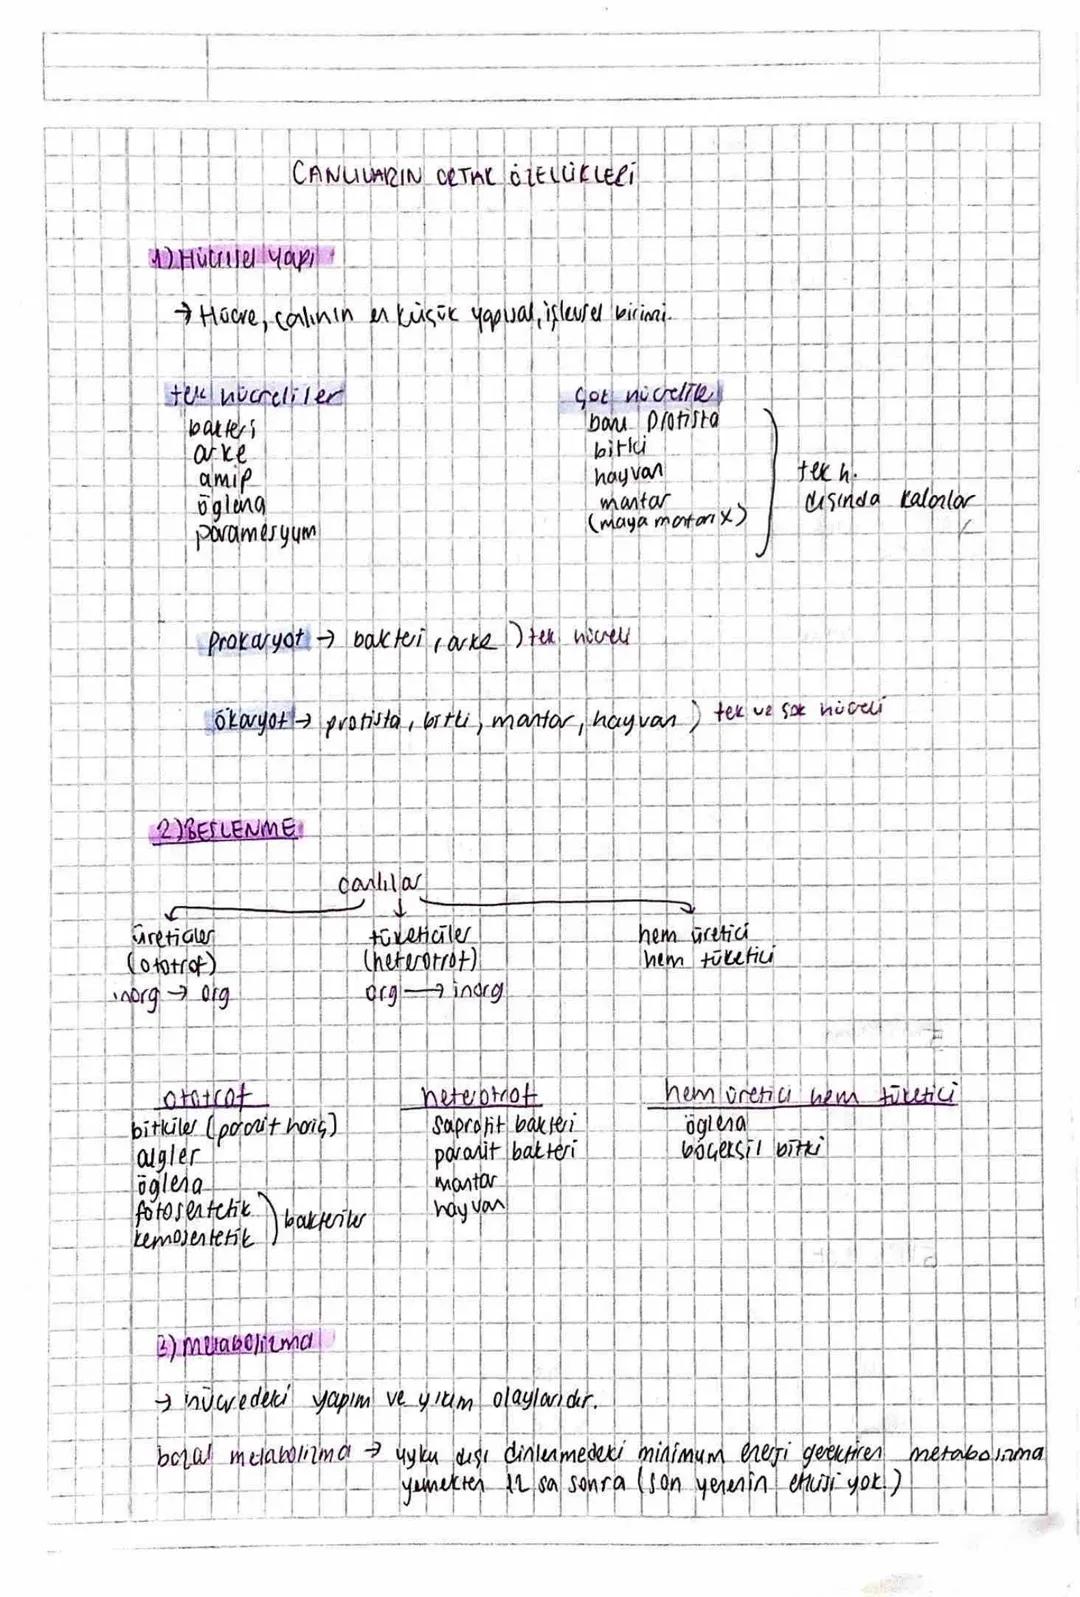 CANLILARIN ORTAK ÖZELLİKLERİ
1) Hücresel yapı
→ Hücre, canlının en küçük yapısal, işlevsel birimi.
tek hücreliler
bakteri
arke
amip
öglena
paramesyum
çok hücreliler
bazı protista
bitki
hayvan
mantar
(maya mantarı X)
tek h.
dışında kalanlar
Prokaryot → bakteri, arke ) tek hücreli
ökaryot → protista, bitki, mantar, hayvan ) tek ve çok hücreli
2) BESLENME
canlılar
üreticiler
(ototrof)
inorg → org
tüketiciler
(heterotrof)
org → inorg
hem üretici
hem tüketici
ototrof
bitkiler (parazit hariç)
algler
öglena
fotosentetik
kemosentetik
) bakteriler
heterotrof
saprofit bakteri
parazit bakteri
mantar
hayvan
hem üretici hem tüketici
öglena
böçeksil bitki
3) metabolizma
→ hücredeki yapım ve yıkım olaylarıdır.
bazal metabolizma → uyku dışı dinlenmedeki minimum enerji gerektiren metabolizma
yemekten 12 sa sonra (son yemenin etkisi yok.)